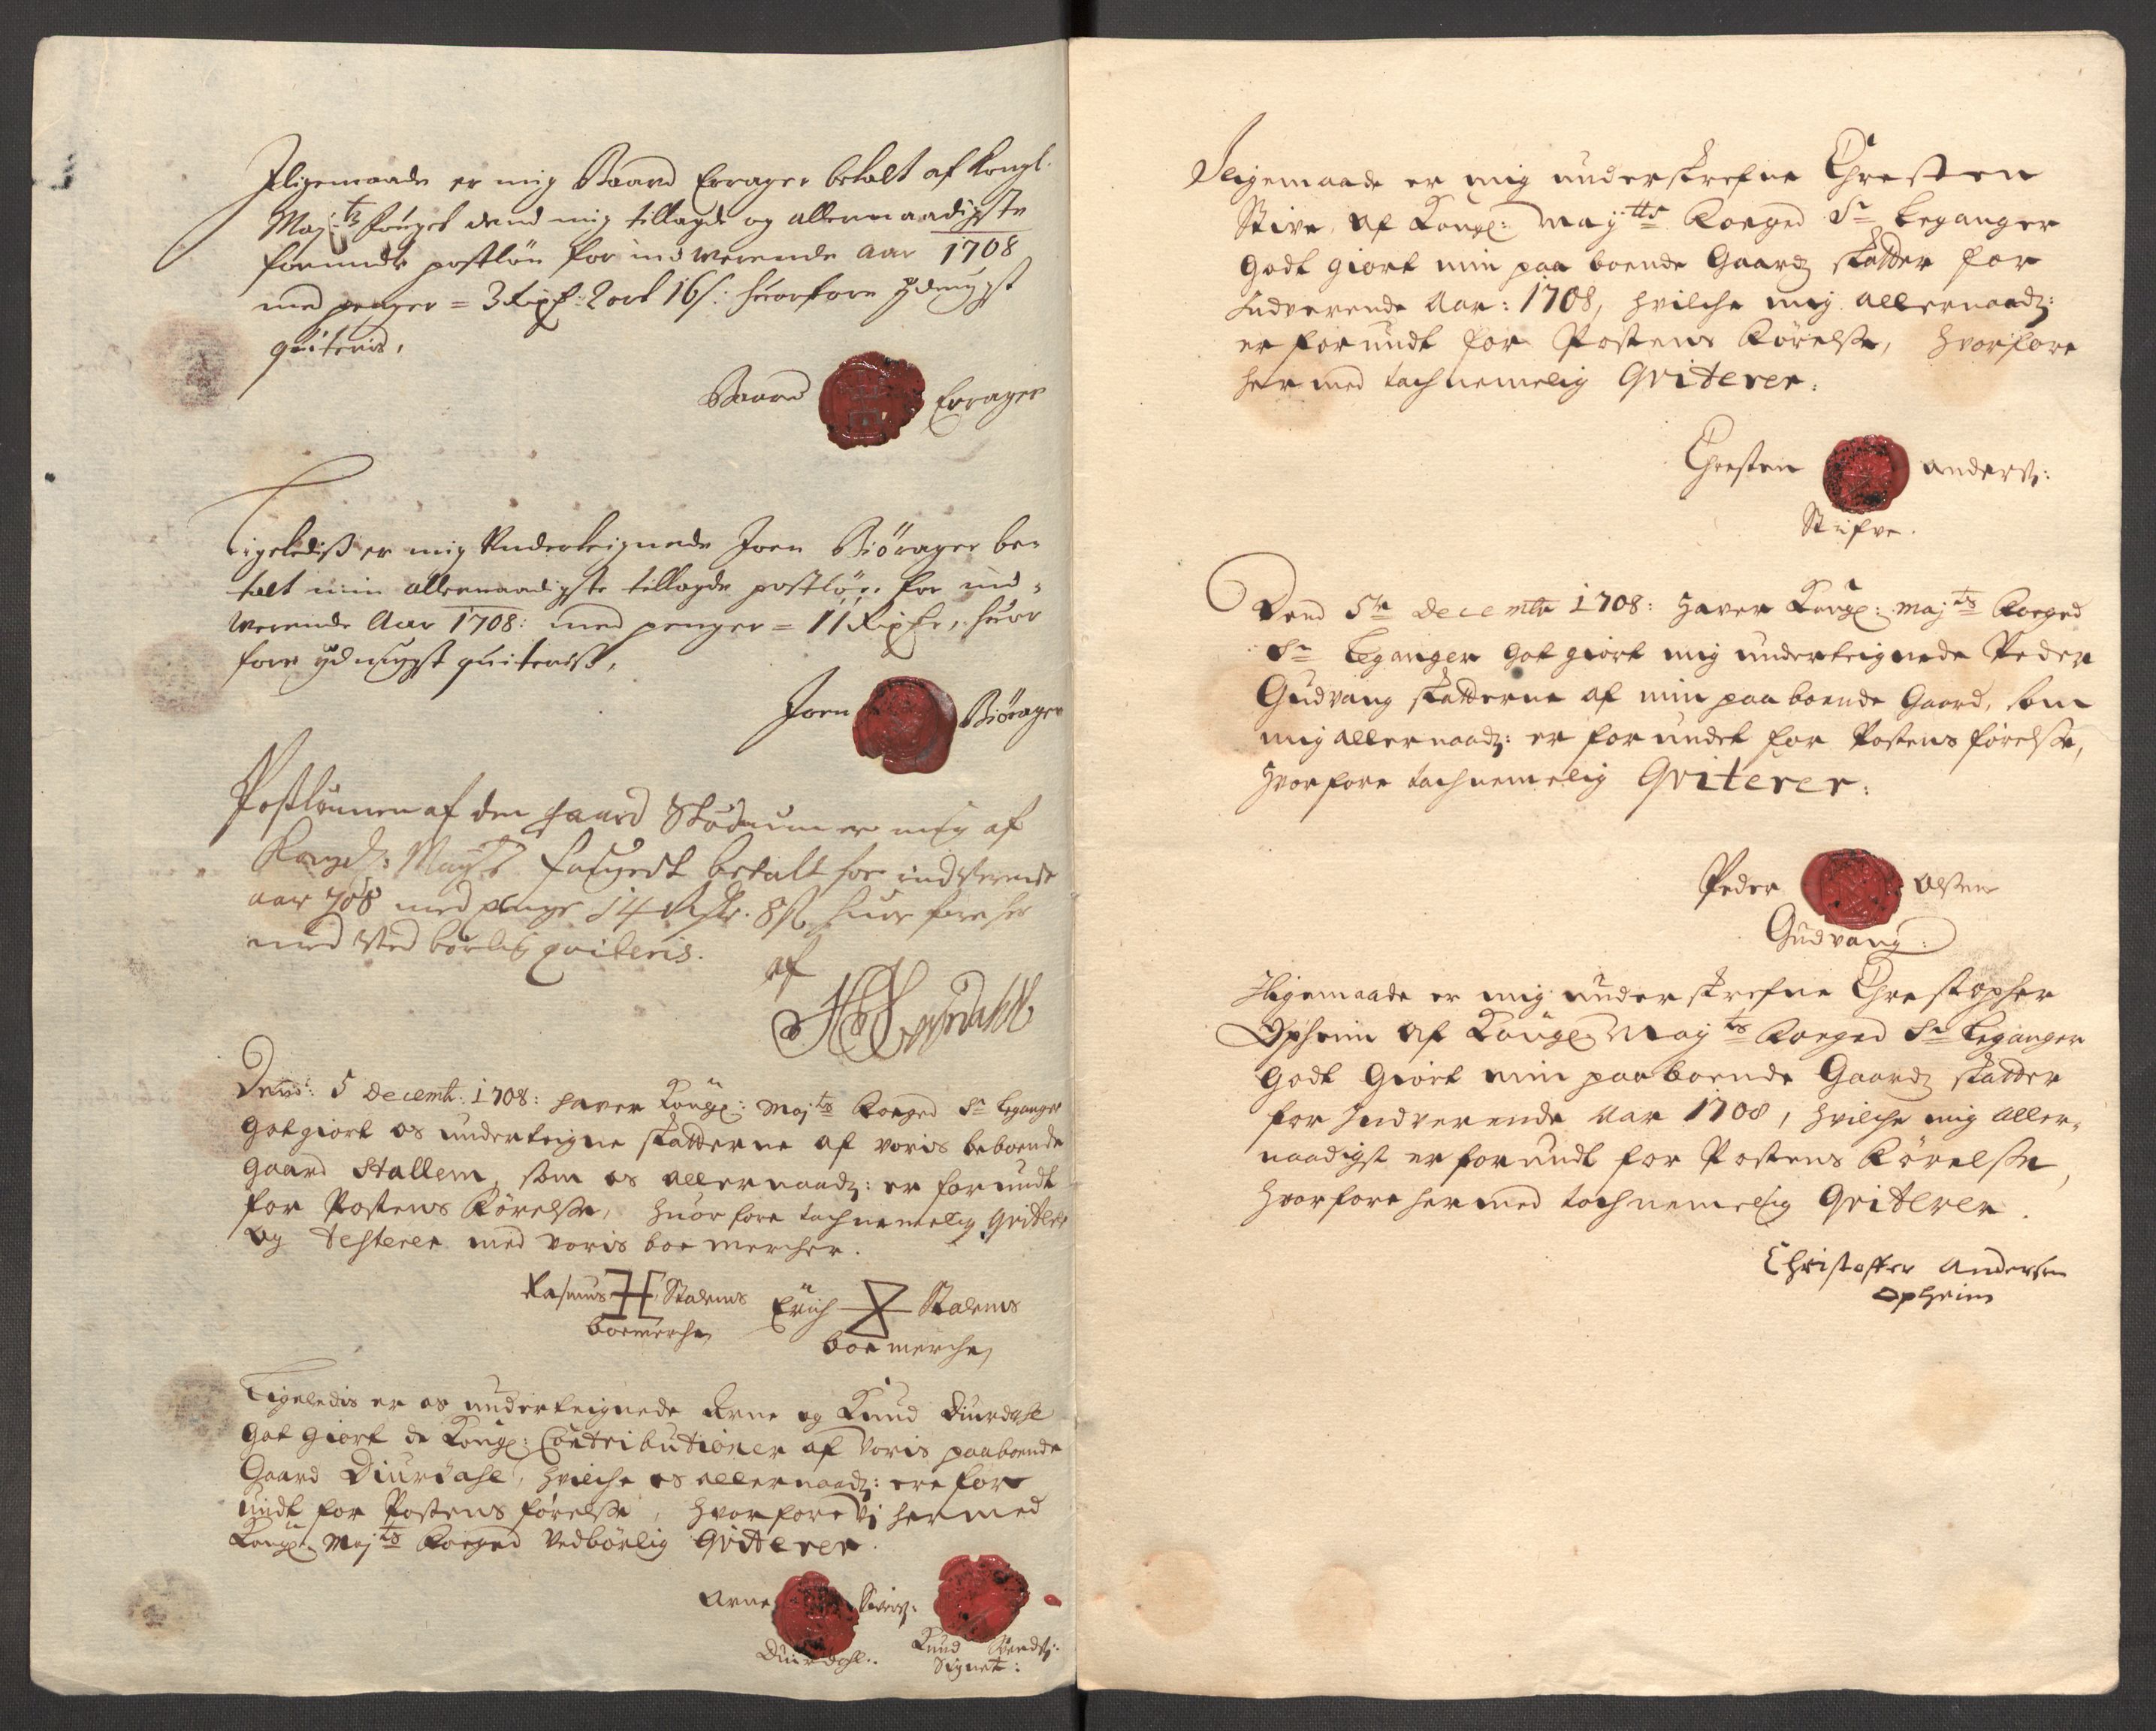 Iligemaade er mig Baard Errager betalt af Kongl.
Maj:ts fouget dend mig tillagde og allernaadigste
forundte postløn for indverende Aar 1708
med penger = 3 Rixf: 2 ort 16 s: huorfore ydmygst
quiteris,
Baard Errager
Ligelediss er mig Underteignede Joen Biörager be-
talt min allernaadigste tillagde postløn for ind-
werende Aar 1708: med penger = 11 Rixdr, huor
fore ydmygst quiterisst,
Joen Biörager
Postlønnen af den gaard Skodnum er mig af
Kongl: Mayts fougedt betalt for indverende
aar 708 med penge 14 Rdr. 8 s huor fore her
med Ved børlig qviteris.
af
Dend: 5 Decemb: 1708: haver Kongl: Maj:ts Foeged Sr Leganger
got giort os underteigne skatterne af voris beboende
gaard Stallem, som os allernaad: er forundt
for Postens Körelsse, huorfore tachnemelig Qvitter
og testerer med voris boemercher.
Rasmus Stalems
boemerche
Erich Stalems
boemerche
Ligeledis er os underteignede Arne og Knud Diurdahl
got giort de Kongl: Contributioner af voris paaboende
Gaard Diurdahl, hvilche os allernaad: ere for
undt for Postens förelsse, hvorfore vi hermed
Kongl. Maj:ts Foeged Vedbörlig Qvitterer.
Arne Sivers:
Diurdahl.
Knud
Signet:
Iligemaade er mig underskrefne Christen
Stive, af Kongl: May:tts Foeged Sr Leganger
godt giort min paa boende Gaards skatter for
Indverende Aar: 1708, hvilche mig allernaad:
er forundt for Postens Körelsse, hvorfore
her med tachnemelig Qviterer:
Chresten anders:
Stifve.
Dend 5te Decembr 1708: haver Kongl: Maj:ts Foeged
Sr Leganger got giort mig underteignede Peder
Gudvang skatterne af min paaboende Gaard, som
mig allernaad: er forundet for Postens förelsse,
hvorfore tachnemelig Qviterer:
Peder Olsen
Gudvang:
Iligemaade er mig underskrefne Chrestopher
Opheim af Kongl. May:ts Foeged Sr Leganger
godt Giort min paaboende Gaards skatter
for Indverende Aar 1708, hvilche mig aller-
naadigst er forundt for Postens Körelsse,
hvorfore hermed tachnemelig Qviterer.
Christoffer Andersen
Opheim